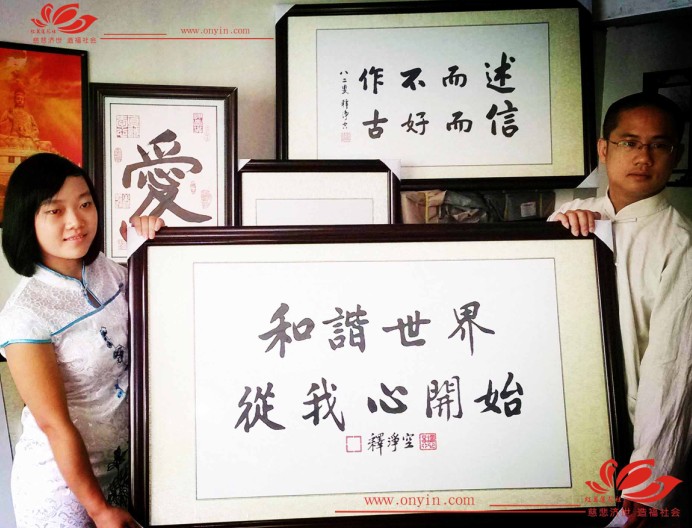 www.onyin.com
慈悲济世 造福社会
述而不作
信而好古
八二叟 釋淨空
愛
和諧世界
從我心開始
釋淨空
www.onyin.com
慈悲济世 造福社会